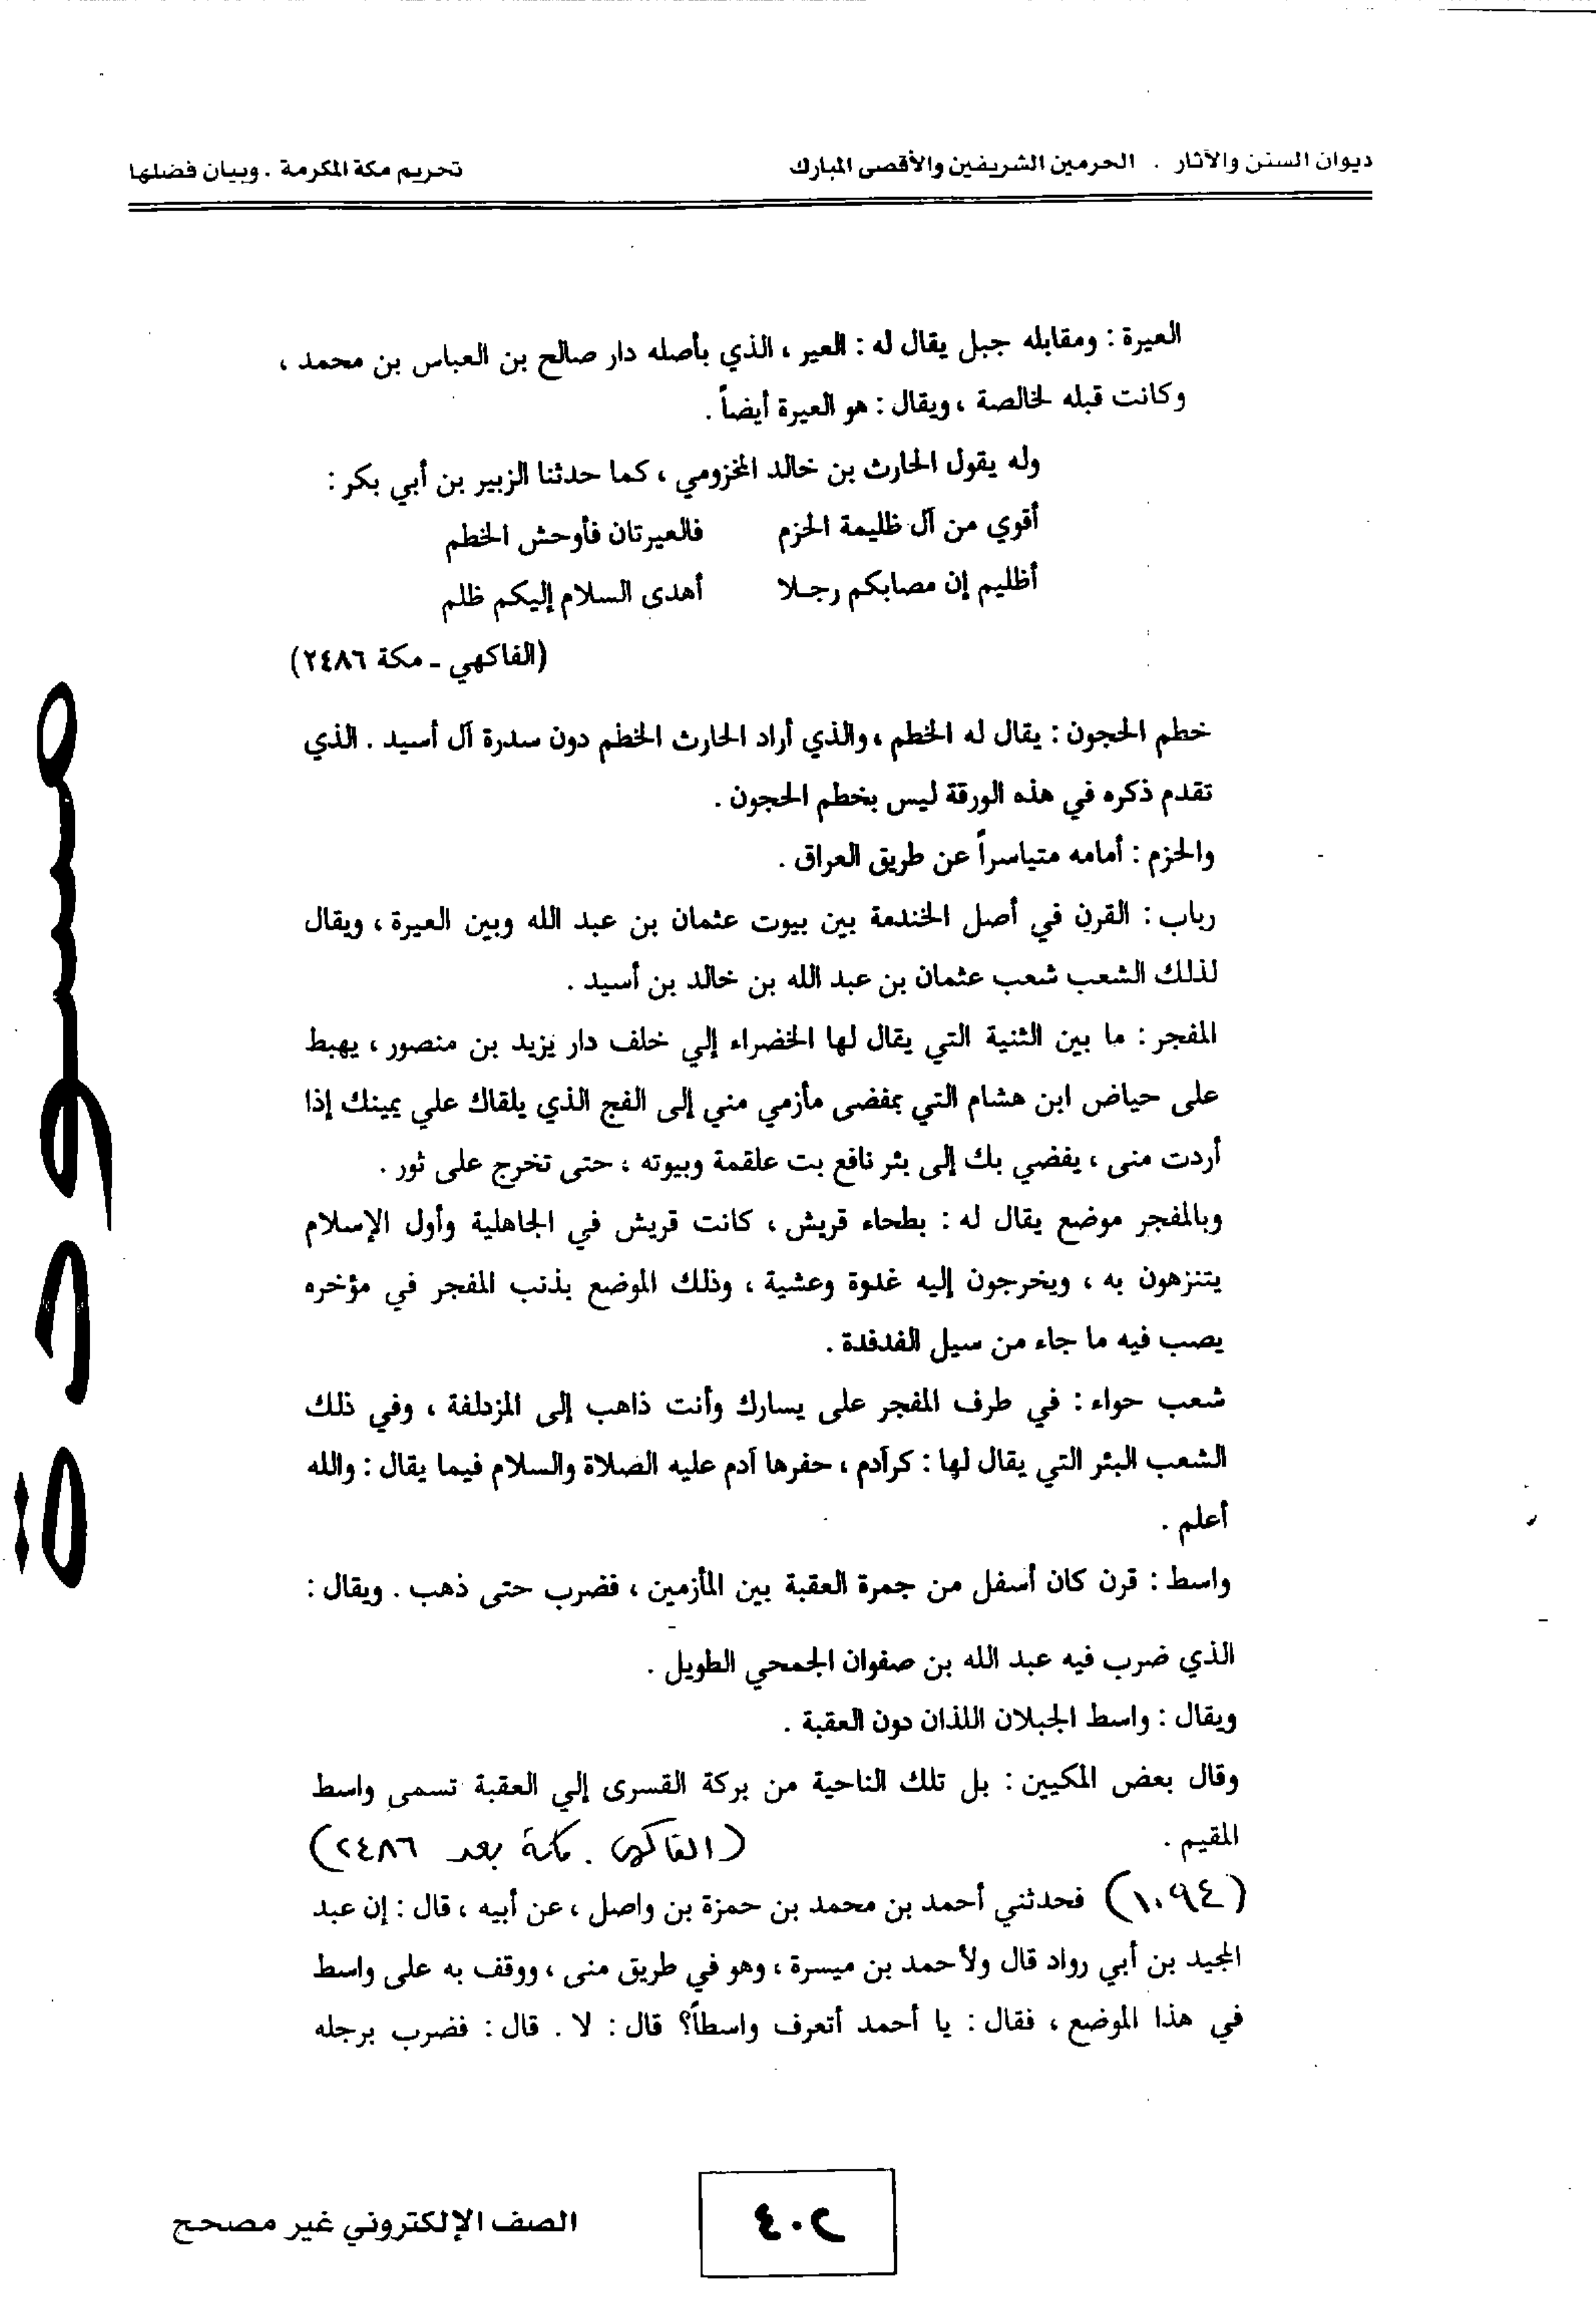 ديوان السنن والآثار . الحرمين الشريفين والأقصى المبارك
تحريم مكة المكرمة . وبيان فضلها
العيرة : ومقابله جبل يقال له : العير ، الذي بأصله دار صالح بن العباس بن محمد ،
وكانت قبله لخالصة ، ويقال : هو العيرة أيضاً .
وله يقول الحارث بن خالد المخزومي ، كما حدثنا الزبير بن أبي بكر :
أقوي من آل ظليمة الحزم فالعيرتان فأوحش الخطم
أظليم إن مصابكم رجلا أهدى السلام إليكم ظلم
(الفاكهي - مكة ٢٤٨٦)
خطم الحجون : يقال له الخطم ، والذي أراد الحارث الخطم دون سدرة آل أسيد . الذي
تقدم ذكره في هذه الورقة ليس بخطم الحجون .
والحزم : أمامه متياسراً عن طريق العراق .
رباب : القرن في أصل الخندمة بين بيوت عثمان بن عبد الله وبين العيرة ، ويقال
لذلك الشعب شعب عثمان بن عبد الله بن خالد بن أسيد .
المفجر : ما بين الثنية التي يقال لها الخضراء إلي خلف دار يزيد بن منصور ، يهبط
على حياض ابن هشام التي بمفضى مأزمي مني إلى الفج الذي يلقاك علي يمينك إذا
أردت منى ، يفضي بك إلى بئر نافع بت علقمة وبيوته ، حتى تخرج على ثور .
وبالمفجر موضع يقال له : بطحاء قريش ، كانت قريش في الجاهلية وأول الإسلام
يتنزهون به ، ويخرجون إليه غدوة وعشية ، وذلك الموضع بذنب المفجر في مؤخره
يصب فيه ما جاء من سيل الفدفدة .
شعب حواء : في طرف المفجر على يسارك وأنت ذاهب إلى المزدلفة ، وفي ذلك
الشعب البئر التي يقال لها : كرآدم ، حفرها آدم عليه الصلاة والسلام فيما يقال : والله
أعلم .
واسط : قرن كان أسفل من جمرة العقبة بين المأزمين ، فضرب حتى ذهب . ويقال :
الذي ضرب فيه عبد الله بن صفوان الجمحي الطويل .
ويقال : واسط الجبلان اللذان دون العقبة .
وقال بعض المكيين : بل تلك الناحية من بركة القسرى إلي العقبة تسمى واسط
المقيم . (الفاكهي . مكة بعد ٢٤٨٦)
(١٠٩٤) فحدثني أحمد بن محمد بن حمزة بن واصل ، عن أبيه ، قال : إن عبد
المجيد بن أبي رواد قال ولأحمد بن ميسرة ، وهو في طريق منى ، ووقف به على واسط
في هذا الموضع ، فقال : يا أحمد أتعرف واسطاً؟ قال : لا . قال : فضرب برجله
٢٠٤
الصف الإلكتروني غير مصحح
مسودة